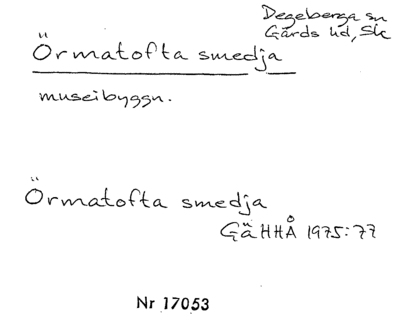 Degeberga sn
Gärds hd, Sk
Örmatofta smedja
museibyggn.
Örmatofta smedja
GäHHÅ 1975:77
Nr 17053